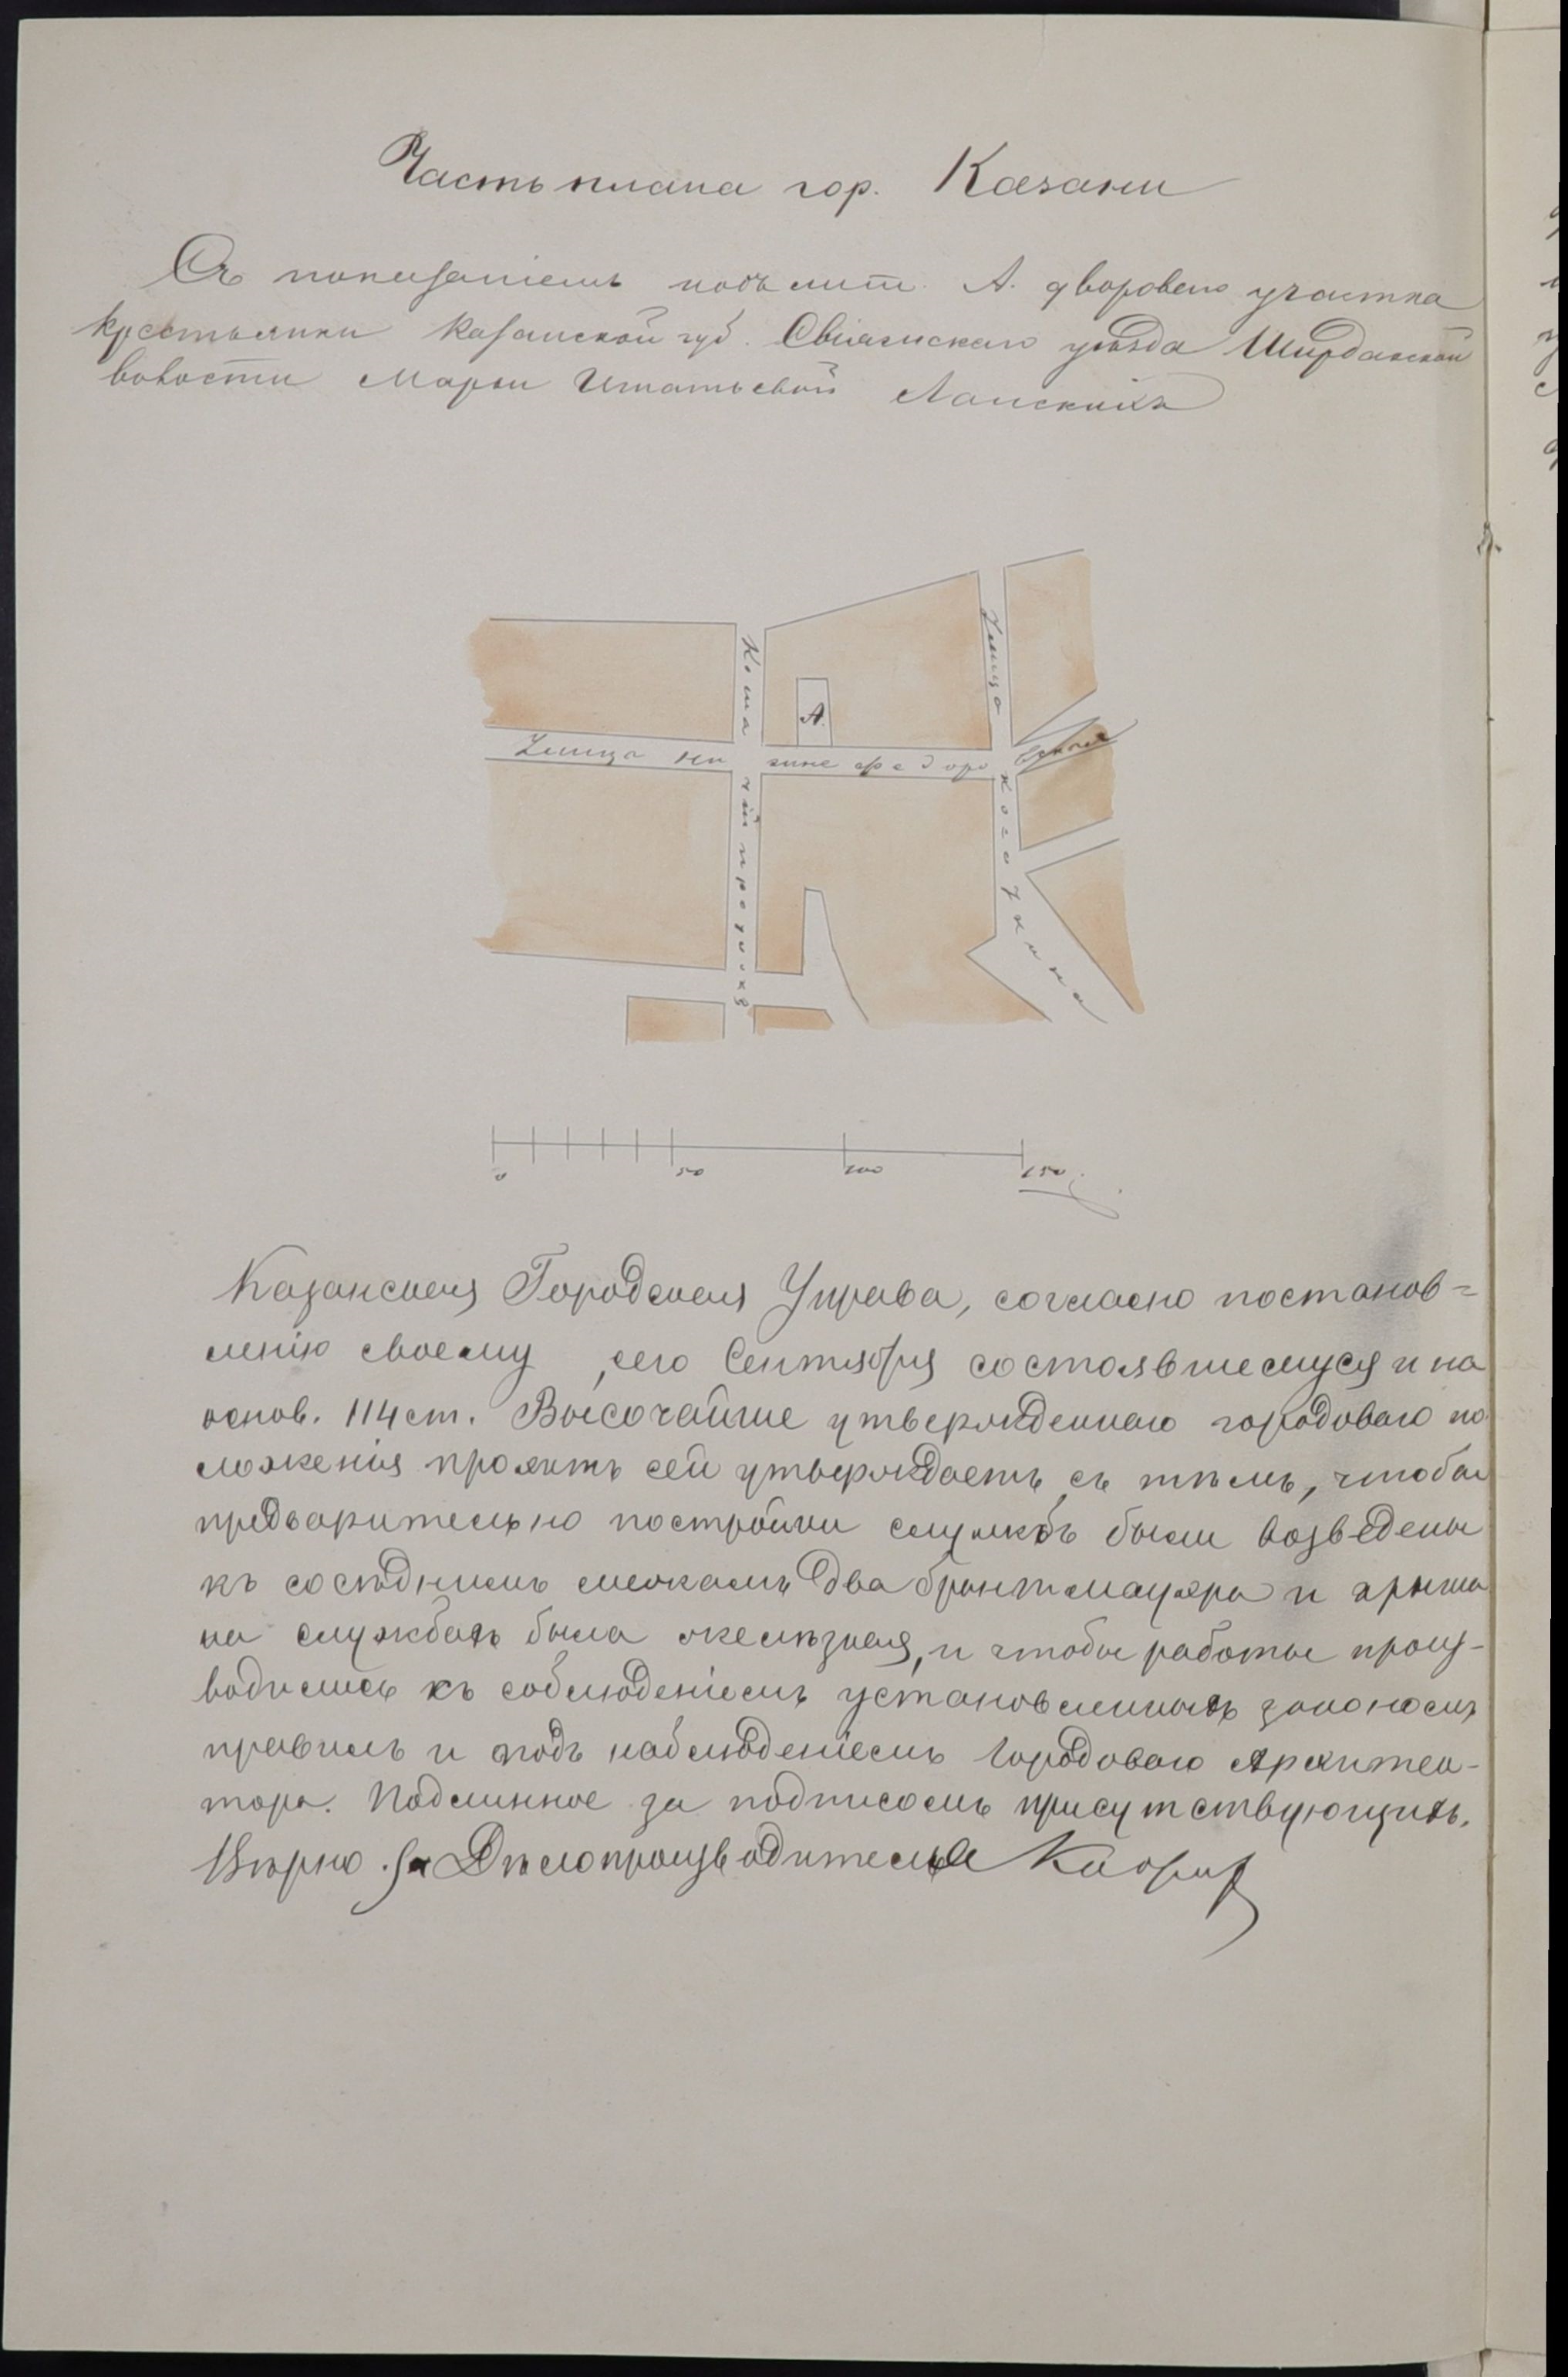 Часть плана гор. Казани
Съ показаніемъ подъ лит. А. двороваго участка
крестьянки Казанской губ. Свіяжскаго уѣзда Ширданской
волости Марьи Игнатьевой Ланскихъ
Улица
А.
Улица Нижне Федоровская
Кошачій переулокъ
Косогуркина
0 50 100 150
Казанская Городская Управа, согласно постанов=
ленію своему, сего Сентября состоявшемуся и на
основ. 114 ст. Высочайше утвержденнаго городоваго по
ложенія проэктъ сей утверждаетъ съ тѣмъ, чтобы
предварительно постройки службъ были возведены
къ сосѣднимъ межамъ два брантмауэра и крыша
на службахъ была желѣзная, и чтобы работы произ-
водились къ соблюденіемъ установленныхъ закономъ
правилъ и подъ наблюденіемъ Городоваго Архитек-
тора. Подлинное за подписомъ присутствующихъ.
Вѣрно. За Дѣлопроизводителя